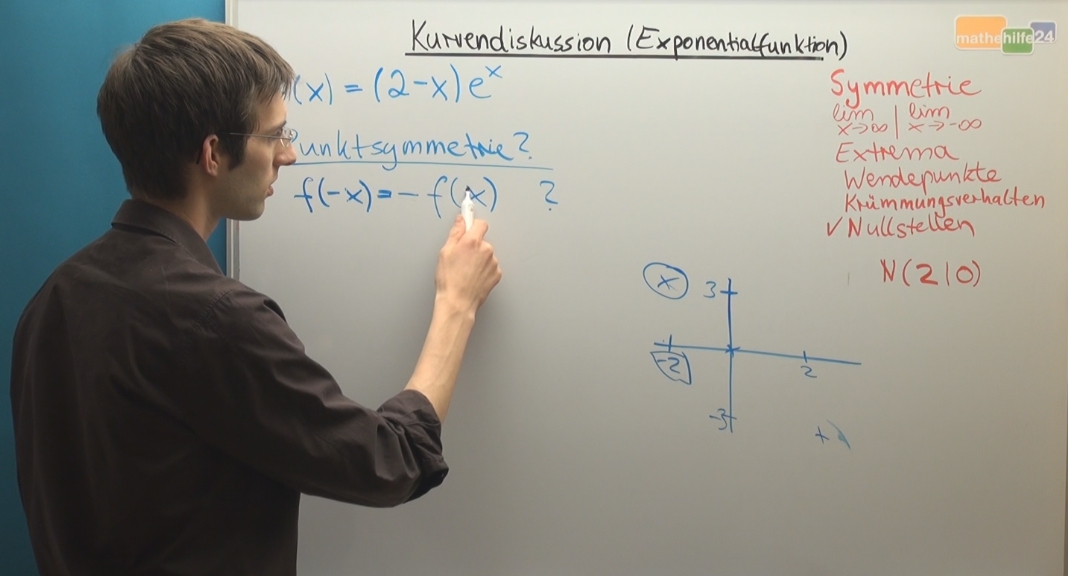 Kurvendiskussion (Exponentialfunktion)
mathehilfe24
(x) = (2-x)eˣ
Punktsymmetrie?
f(-x) = -f(x) ?
Symmetrie
lim x→∞ | lim x→-∞
Extrema
Wendepunkte
Krümmungsverhalten
✓ Nullstellen
N(2|0)
x 3
-2 2
-3
+